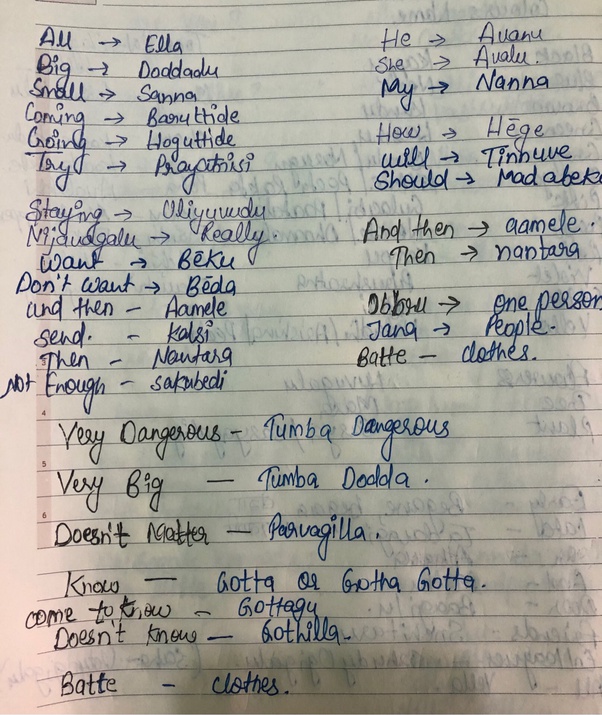 All → Ella
Big → Doddadu
Small → Sanna
Coming → Baruttide
Going → Hoguttide
Try → Prayatnisi
Staying → Uliyuvudu
Nijavagalu → Really.
Want → Bēku
Don't want → Bēda
and then - Aamele
send. - Kalsi
Then - Nantara
Not Enough - sakubedi
He → Avanu
She → Avalu.
My → Nanna
How → Hēge
will → Tinnuve
Should → Madabeku
And then → aamele.
Then → nantara
Obbru → one person
Jana → People.
Batte - clothes.
Very Dangerous - Tumba Dangerous
Very Big - Tumba Dodda.
Doesn't Matter - Parvagilla.
Know - Gotta or Gotha Gotta.
come to know - Gottagu
Doesn't know - Gothilla.
Batte - clothes.